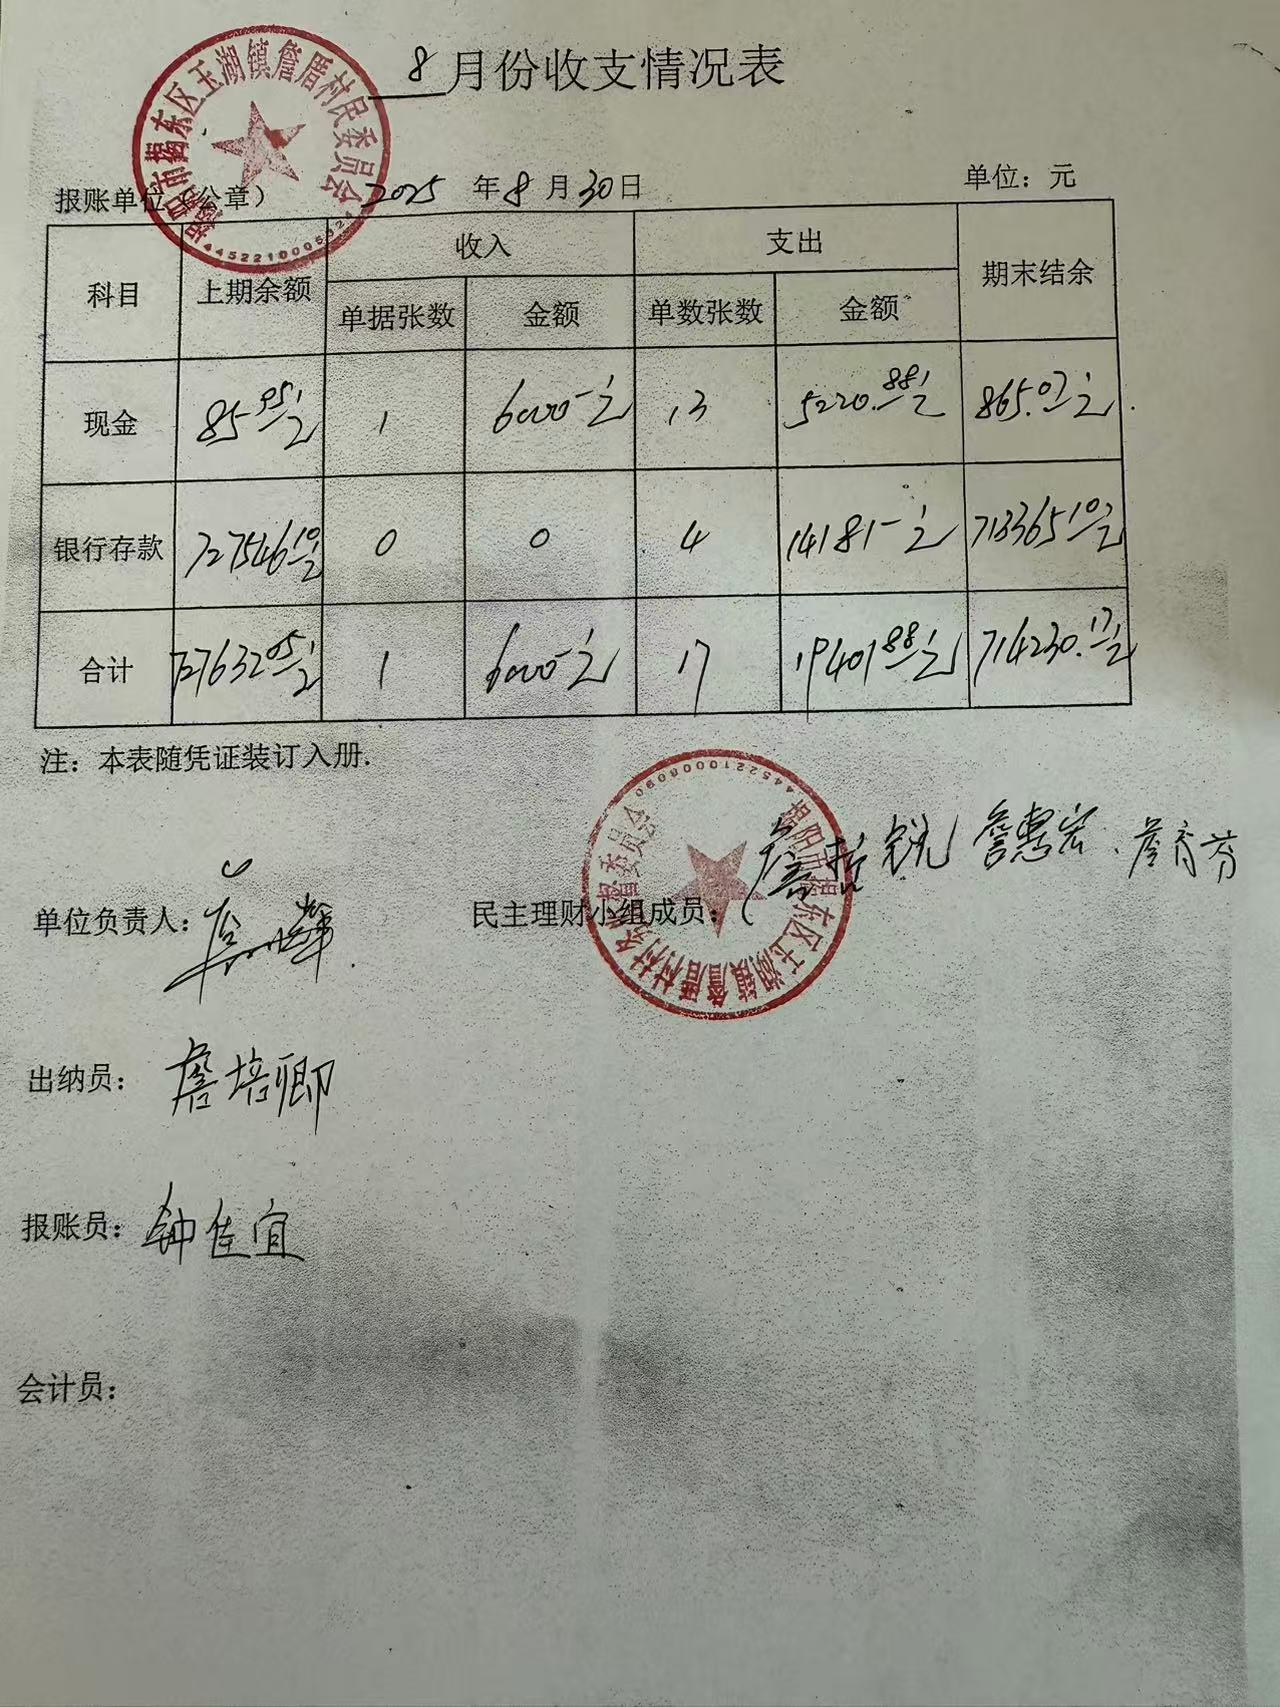 8月份收支情况表
揭阳市揭东区玉湖镇詹厝村民委员会
报账单位(公章) 2025 年 8 月 30 日 单位：元
科目 上期余额 收入 支出 期末结余
单据张数 金额 单数张数 金额
现金 85.95元 1 6000-元 13 5220.88元 865.07元
银行存款 727546.10元 0 0 4 14181-元 713365.10元
合计 727632.05元 1 6000-元 17 19401.88元 714230.17元
注：本表随凭证装订入册.
4452210008090
揭阳市揭东区玉湖镇詹厝村村务监督委员会
詹哲锐 詹惠宏、詹育芬
单位负责人： 民主理财小组成员：
出纳员： 詹培卿
报账员： 钟佳宜
会计员：